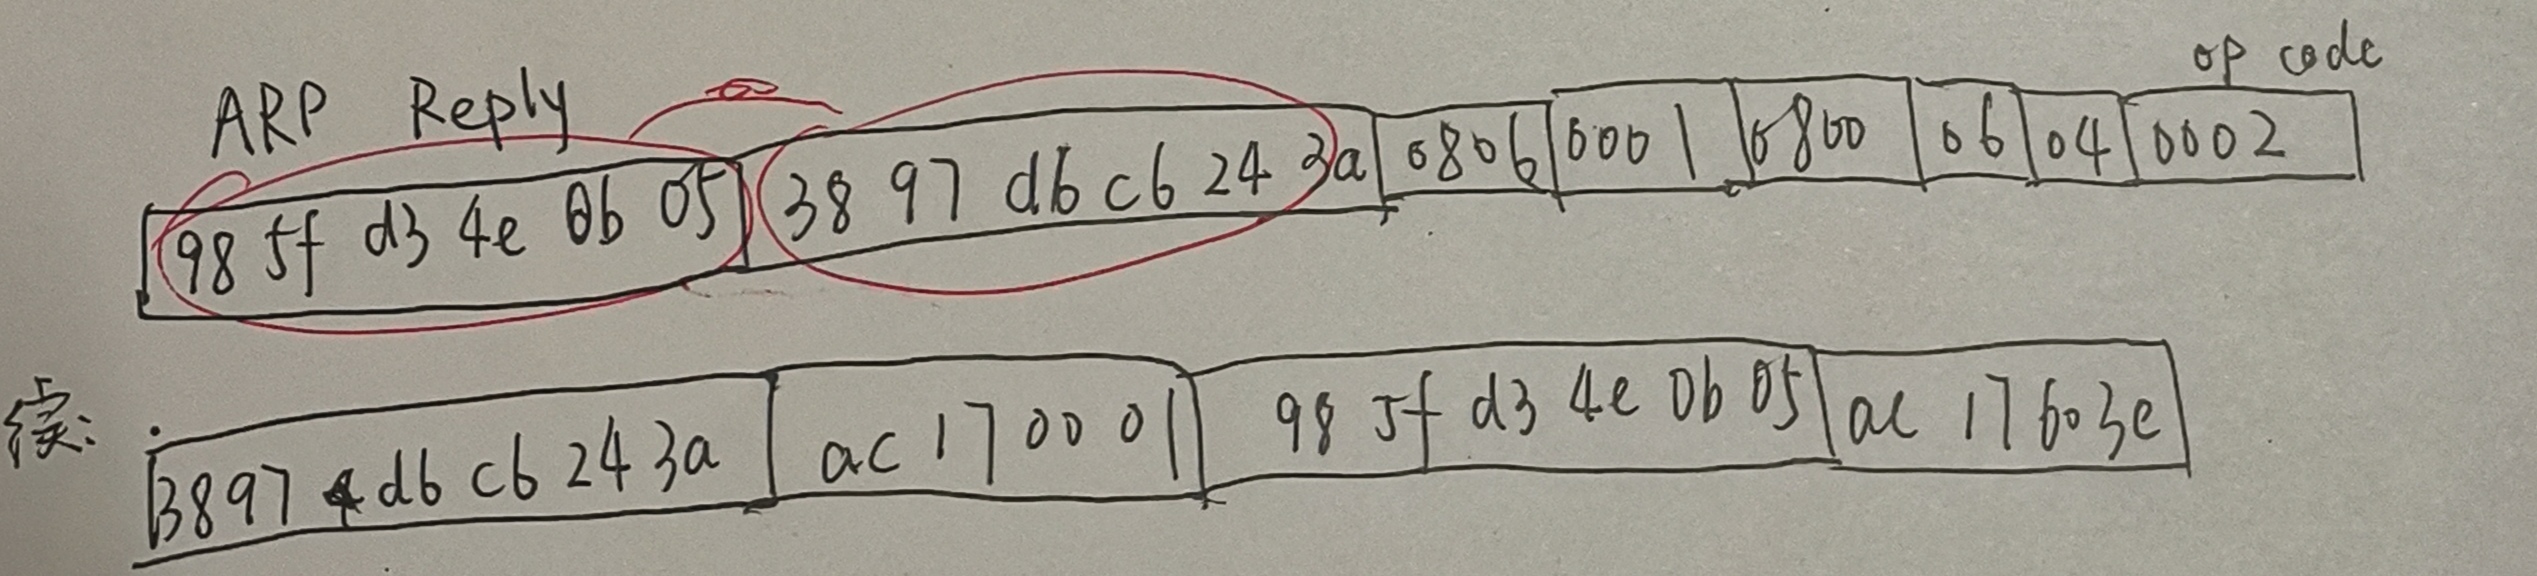 op code
ARP Reply
98 5f d3 4e 0b 05 38 97 d6 c6 24 3a 0806 0001 0800 06 04 0002
续: 3897 d6 c6 24 3a ac 17 00 01 98 5f d3 4e 0b 05 ac 17 603e